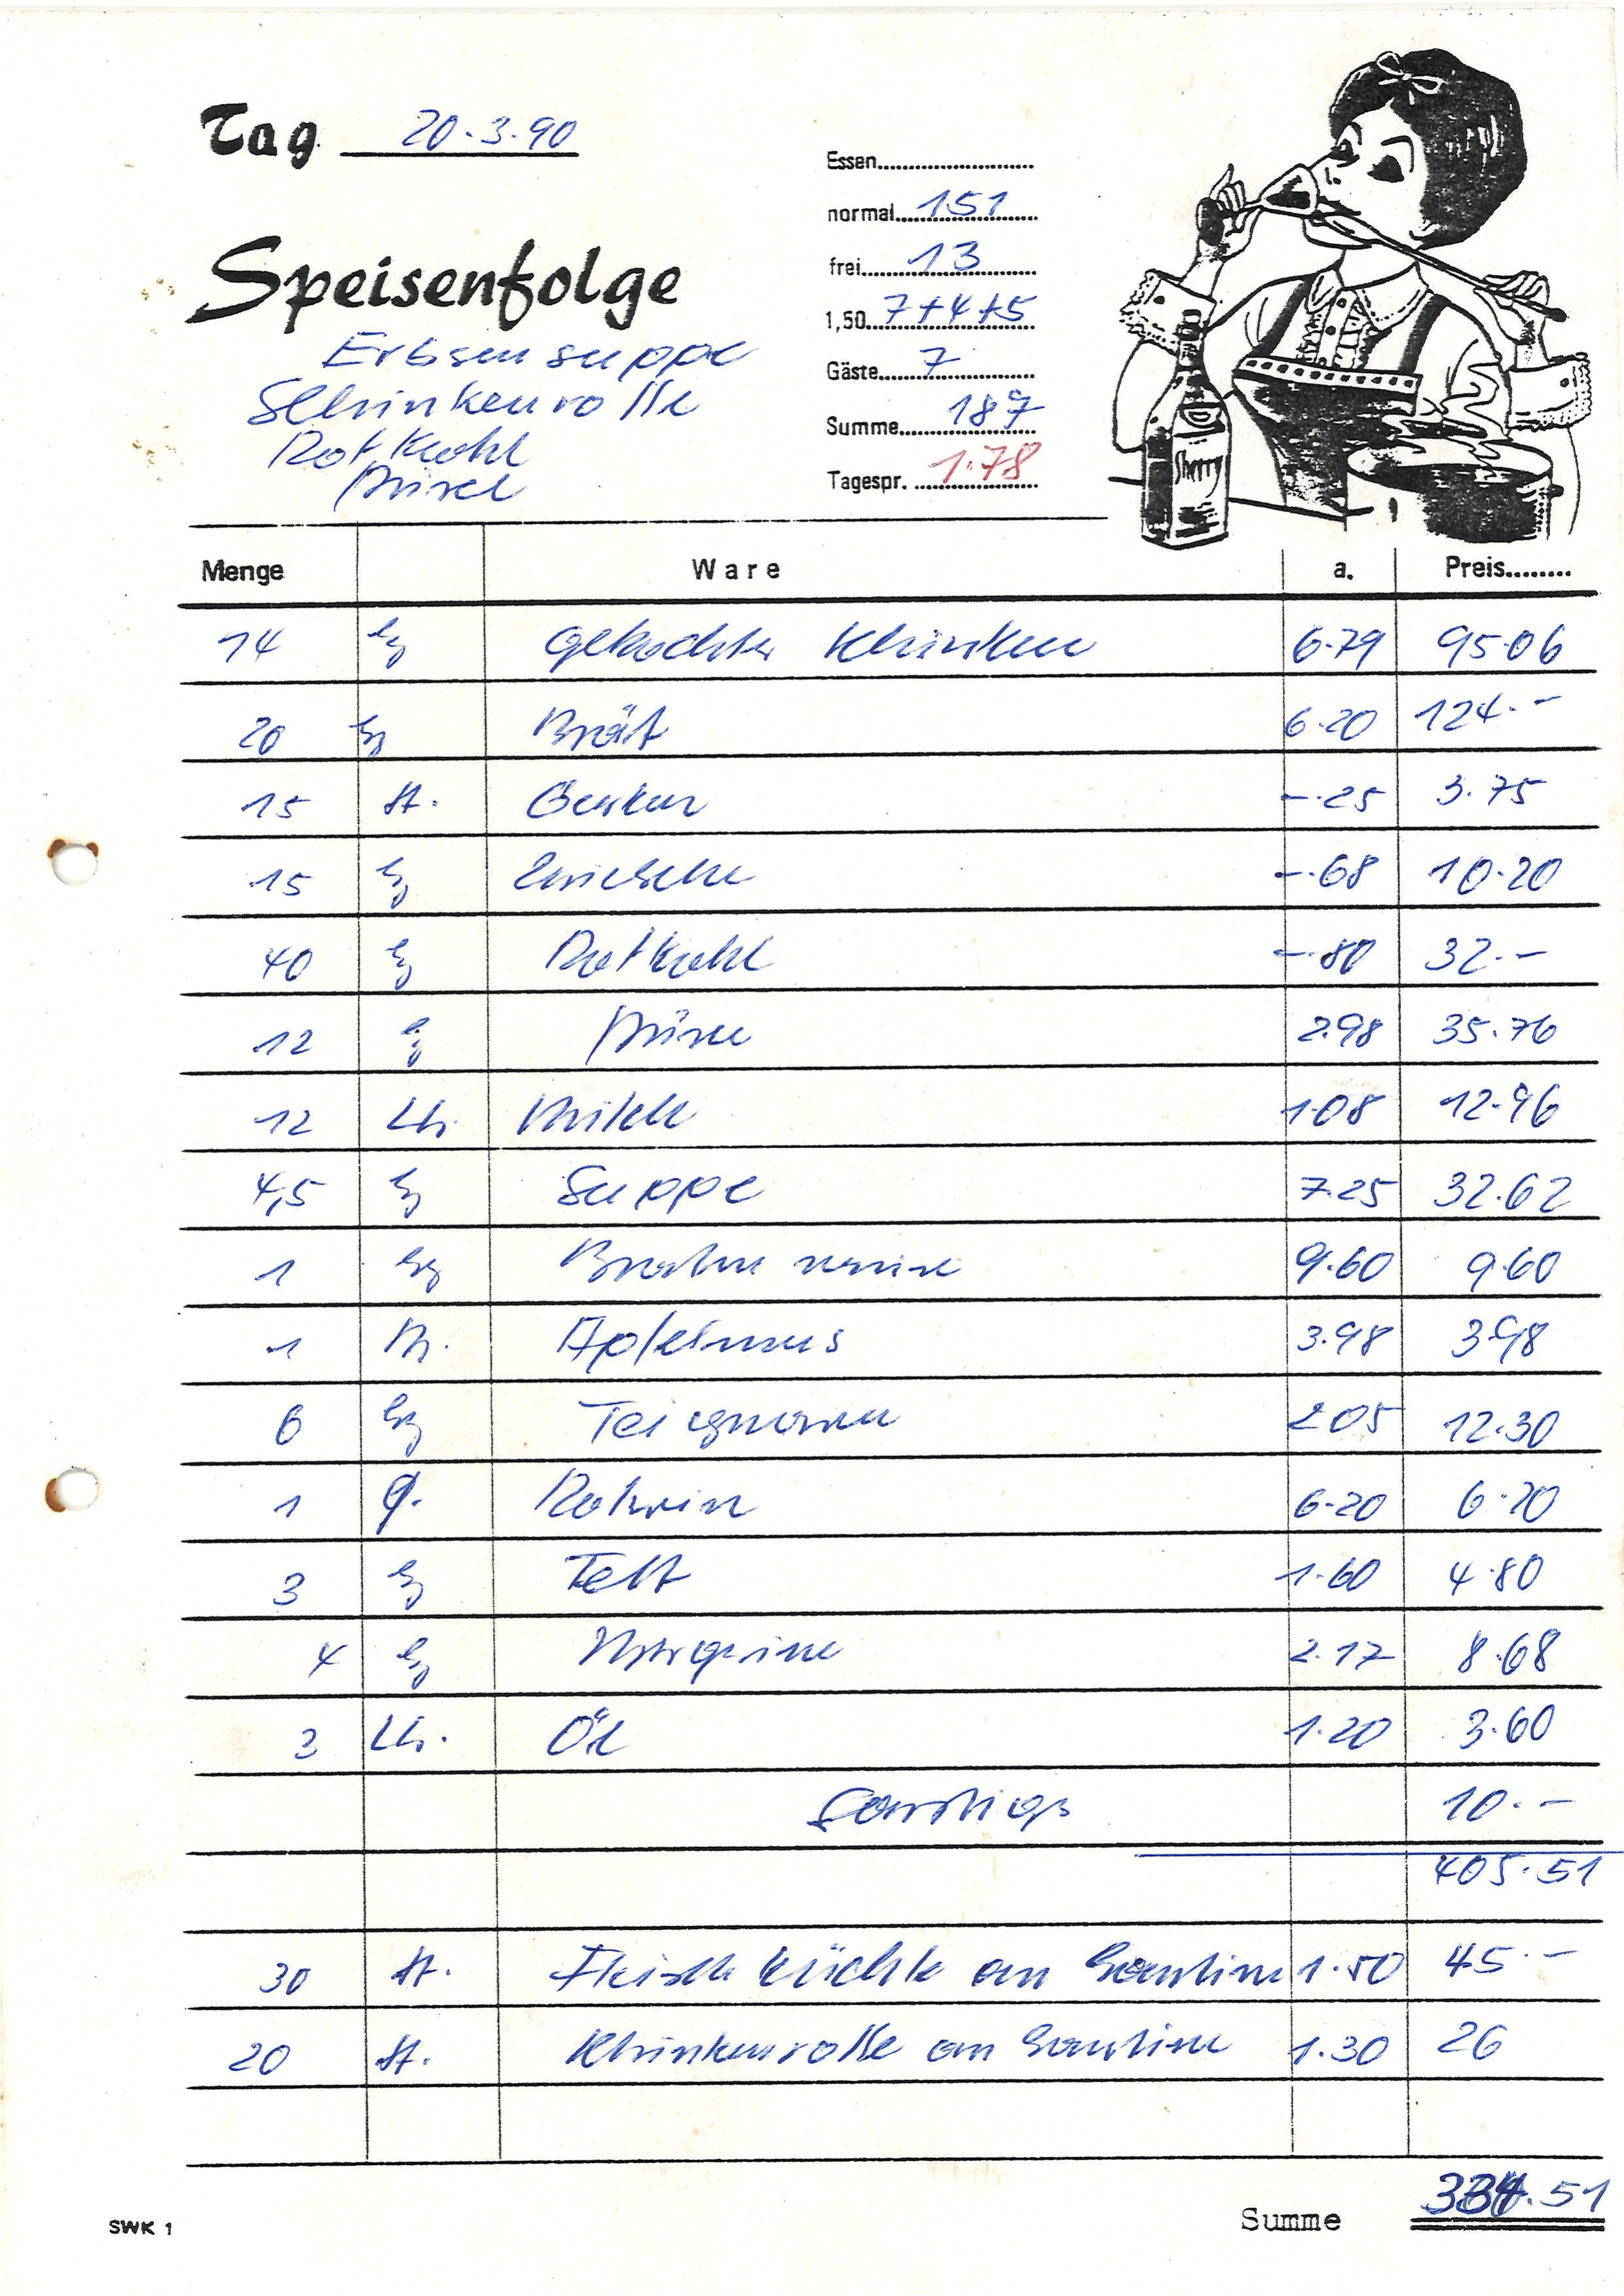 Tag 20.3.90
Essen
normal 151
frei 13
Speisenfolge
1,50 7+4+5
Erbsensuppe
Gäste 7
Schinkenrolle
Summe 187
Rotkohl
Püree
Tagespr. 1.78
Sherry
Menge Ware a. Preis
14 kg gekochter Schinken 6.79 95.06
20 kg Brät 6.20 124.-
15 St. Gurken -.25 3.75
15 kg Zwiebeln -.68 10.20
40 kg Rotkohl -.80 32.-
12 kg Püree 2.98 35.76
12 Ltr. Milch 1.08 12.96
4,5 kg Suppe 7.25 32.62
1 kg 9.60 9.60
1 Apfelmus 3.98 3.98
6 kg Teigwaren 2.05 12.30
1 Fl. Rotwein 6.20 6.20
3 kg Fett 1.60 4.80
4 kg Margarine 2.17 8.68
3 Ltr. Öl 1.20 3.60
Sonstiges 10.-
405.51
30 St. Fleischküchle an Kantine 1.50 45.-
20 St. Schinkenrolle an Kantine 1.30 26
Summe 334.51
SWK 1